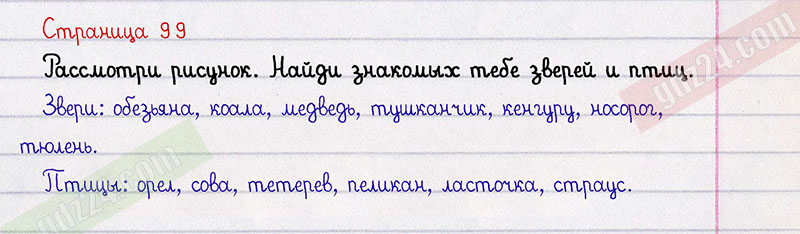 Страница 99
Рассмотри рисунок. Найди знакомых тебе зверей и птиц.
Звери: обезьяна, коала, медведь, тушканчик, кенгуру, носорог,
тюлень.
Птицы: орел, сова, тетерев, пеликан, ласточка, страус.
gdz24.com
gdz24.com